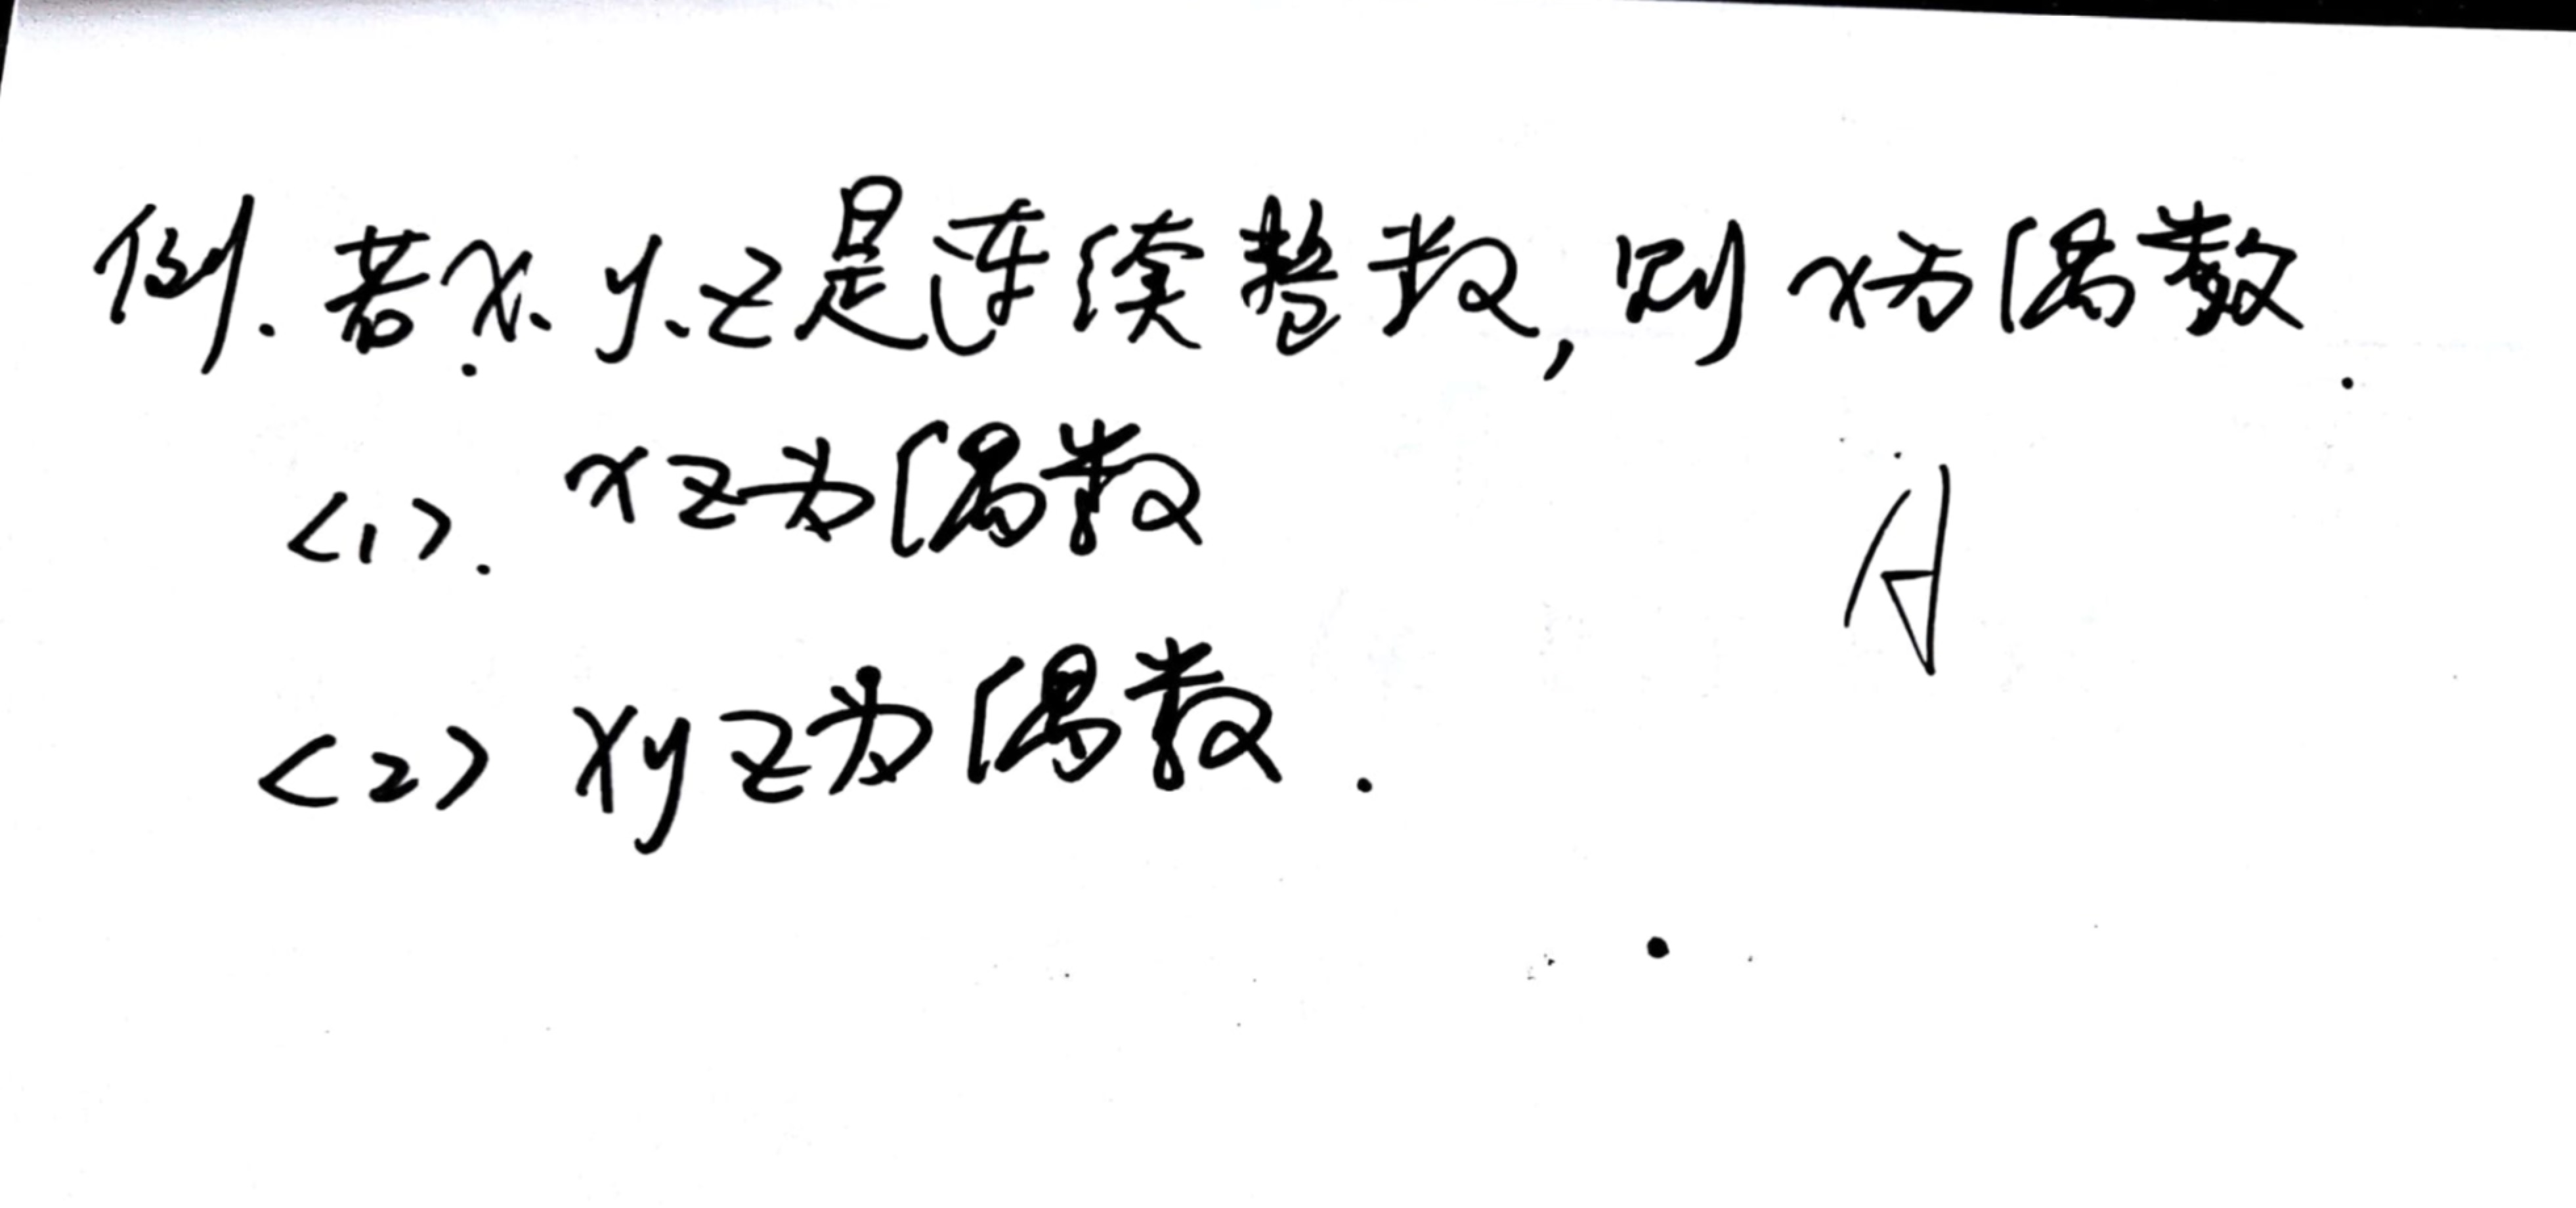 例.若x、y、z是连续整数,则x为偶数.
<1>. xz为偶数
A
<2> xyz为偶数.